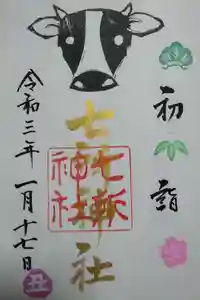 初詣
七所神社
七所
神社
令和三年 一月十七日
丑